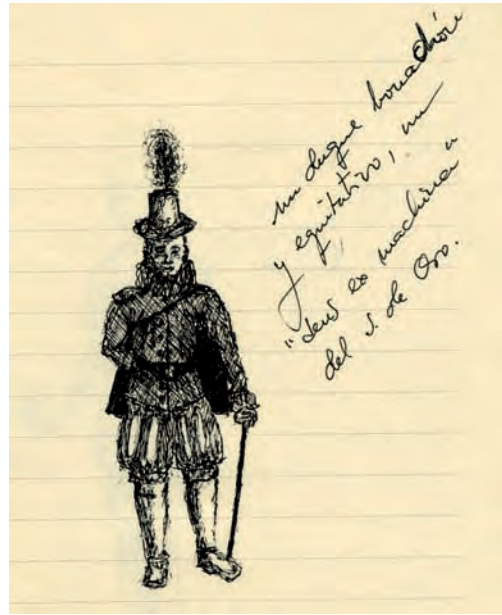 un duque bonachón
y equitativo, un
"deus ex machina"
del s. de Oro.